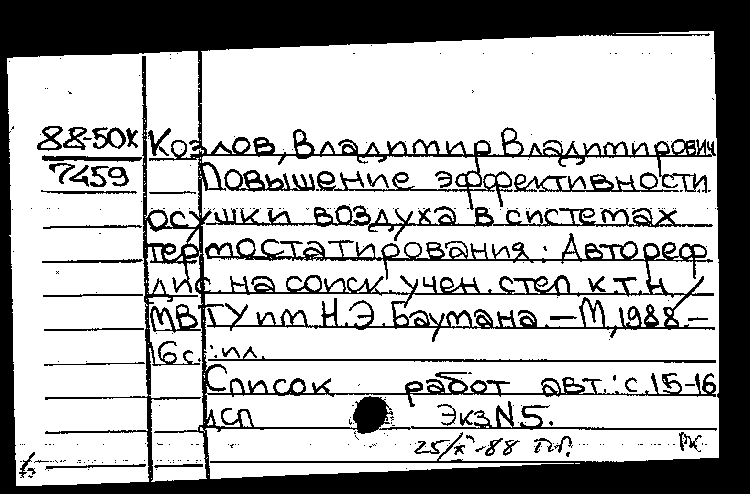 88-50х Козлов, Владимир Владимирович
7459 Повышение эффективности
осушки воздуха в системах
термостатирования: Автореф
дис. на соиск. учен. степ. к.т.н. /
МВТУ им. Н.Э. Баумана. — М, 1988. —
16 с.: ил.
Список работ авт.: с. 15-16
ДСП Экз N5.